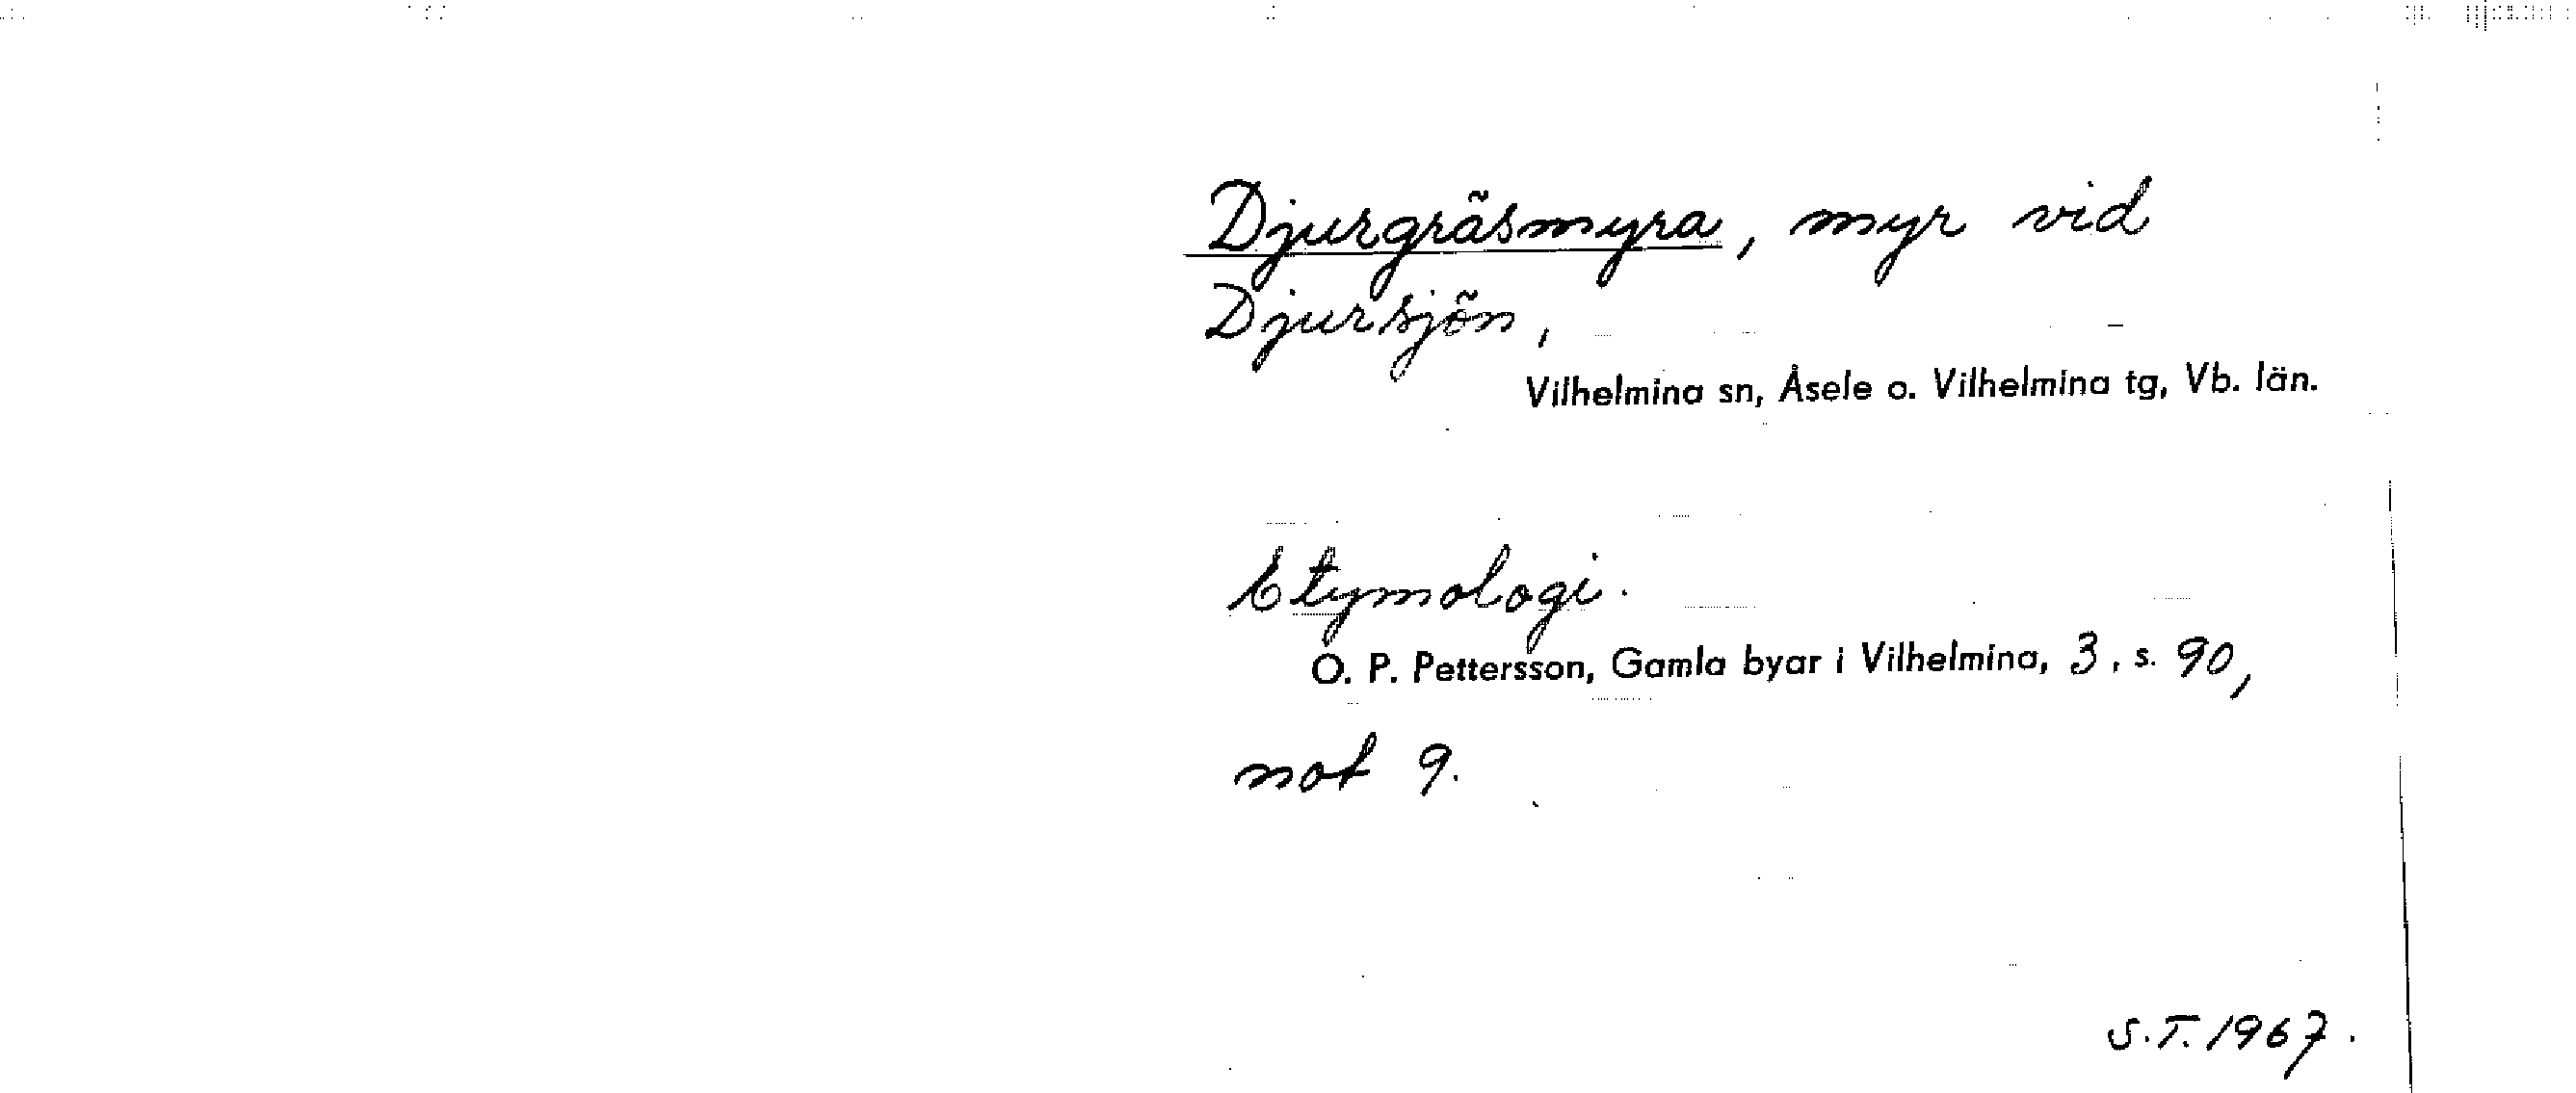 Djurgräsmyra, myr vid
Djursjön,
Vilhelmina sn, Åsele o. Vilhelmina tg, Vb. län.
Etymologi.
O. P. Pettersson, Gamla byar i Vilhelmina, 3, s. 90,
not 9.
S.T. 1967.